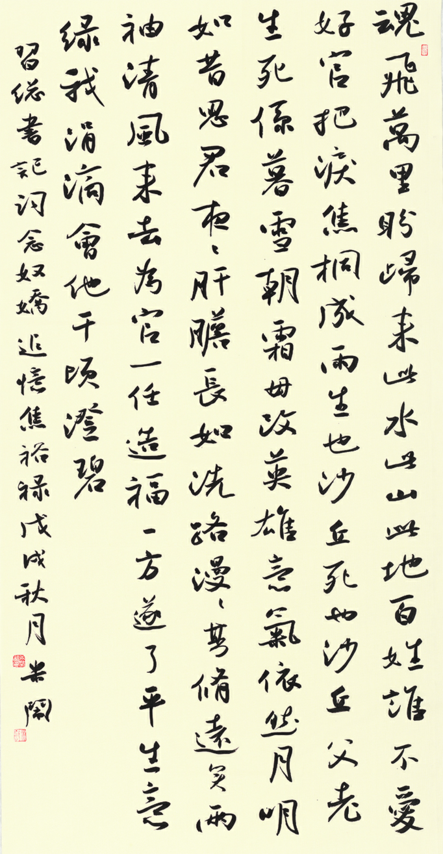 魂飛萬里盼歸来此水此山此地百姓誰不愛
好官把淚焦桐成雨生也沙丘死也沙丘父老
生死係暮雪朝霜毋改英雄意氣依然月明
如昔思君夜〻肝膽長如洗路漫〻其脩遠矣兩
袖清風来去為官一任造福一方遂了平生意
绿我涓滴會他千顷澄碧
習総書記词念奴嬌追憶焦裕禄戊戌秋月